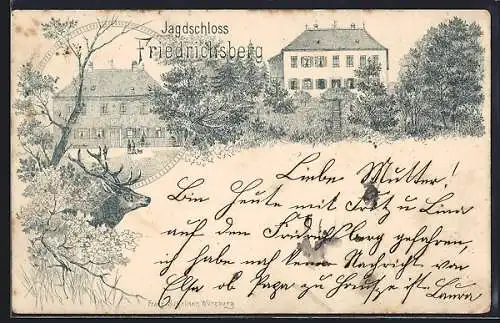 Jagdschloss
Friedrichsberg
Liebe Mutter!
Bin Heute mit Fritz u Lina
auf den Friedrichsberg gefahren,
ich habe noch keine Nachricht von
Elsa ob Papa zu Hause ist. Laura
Würzburg